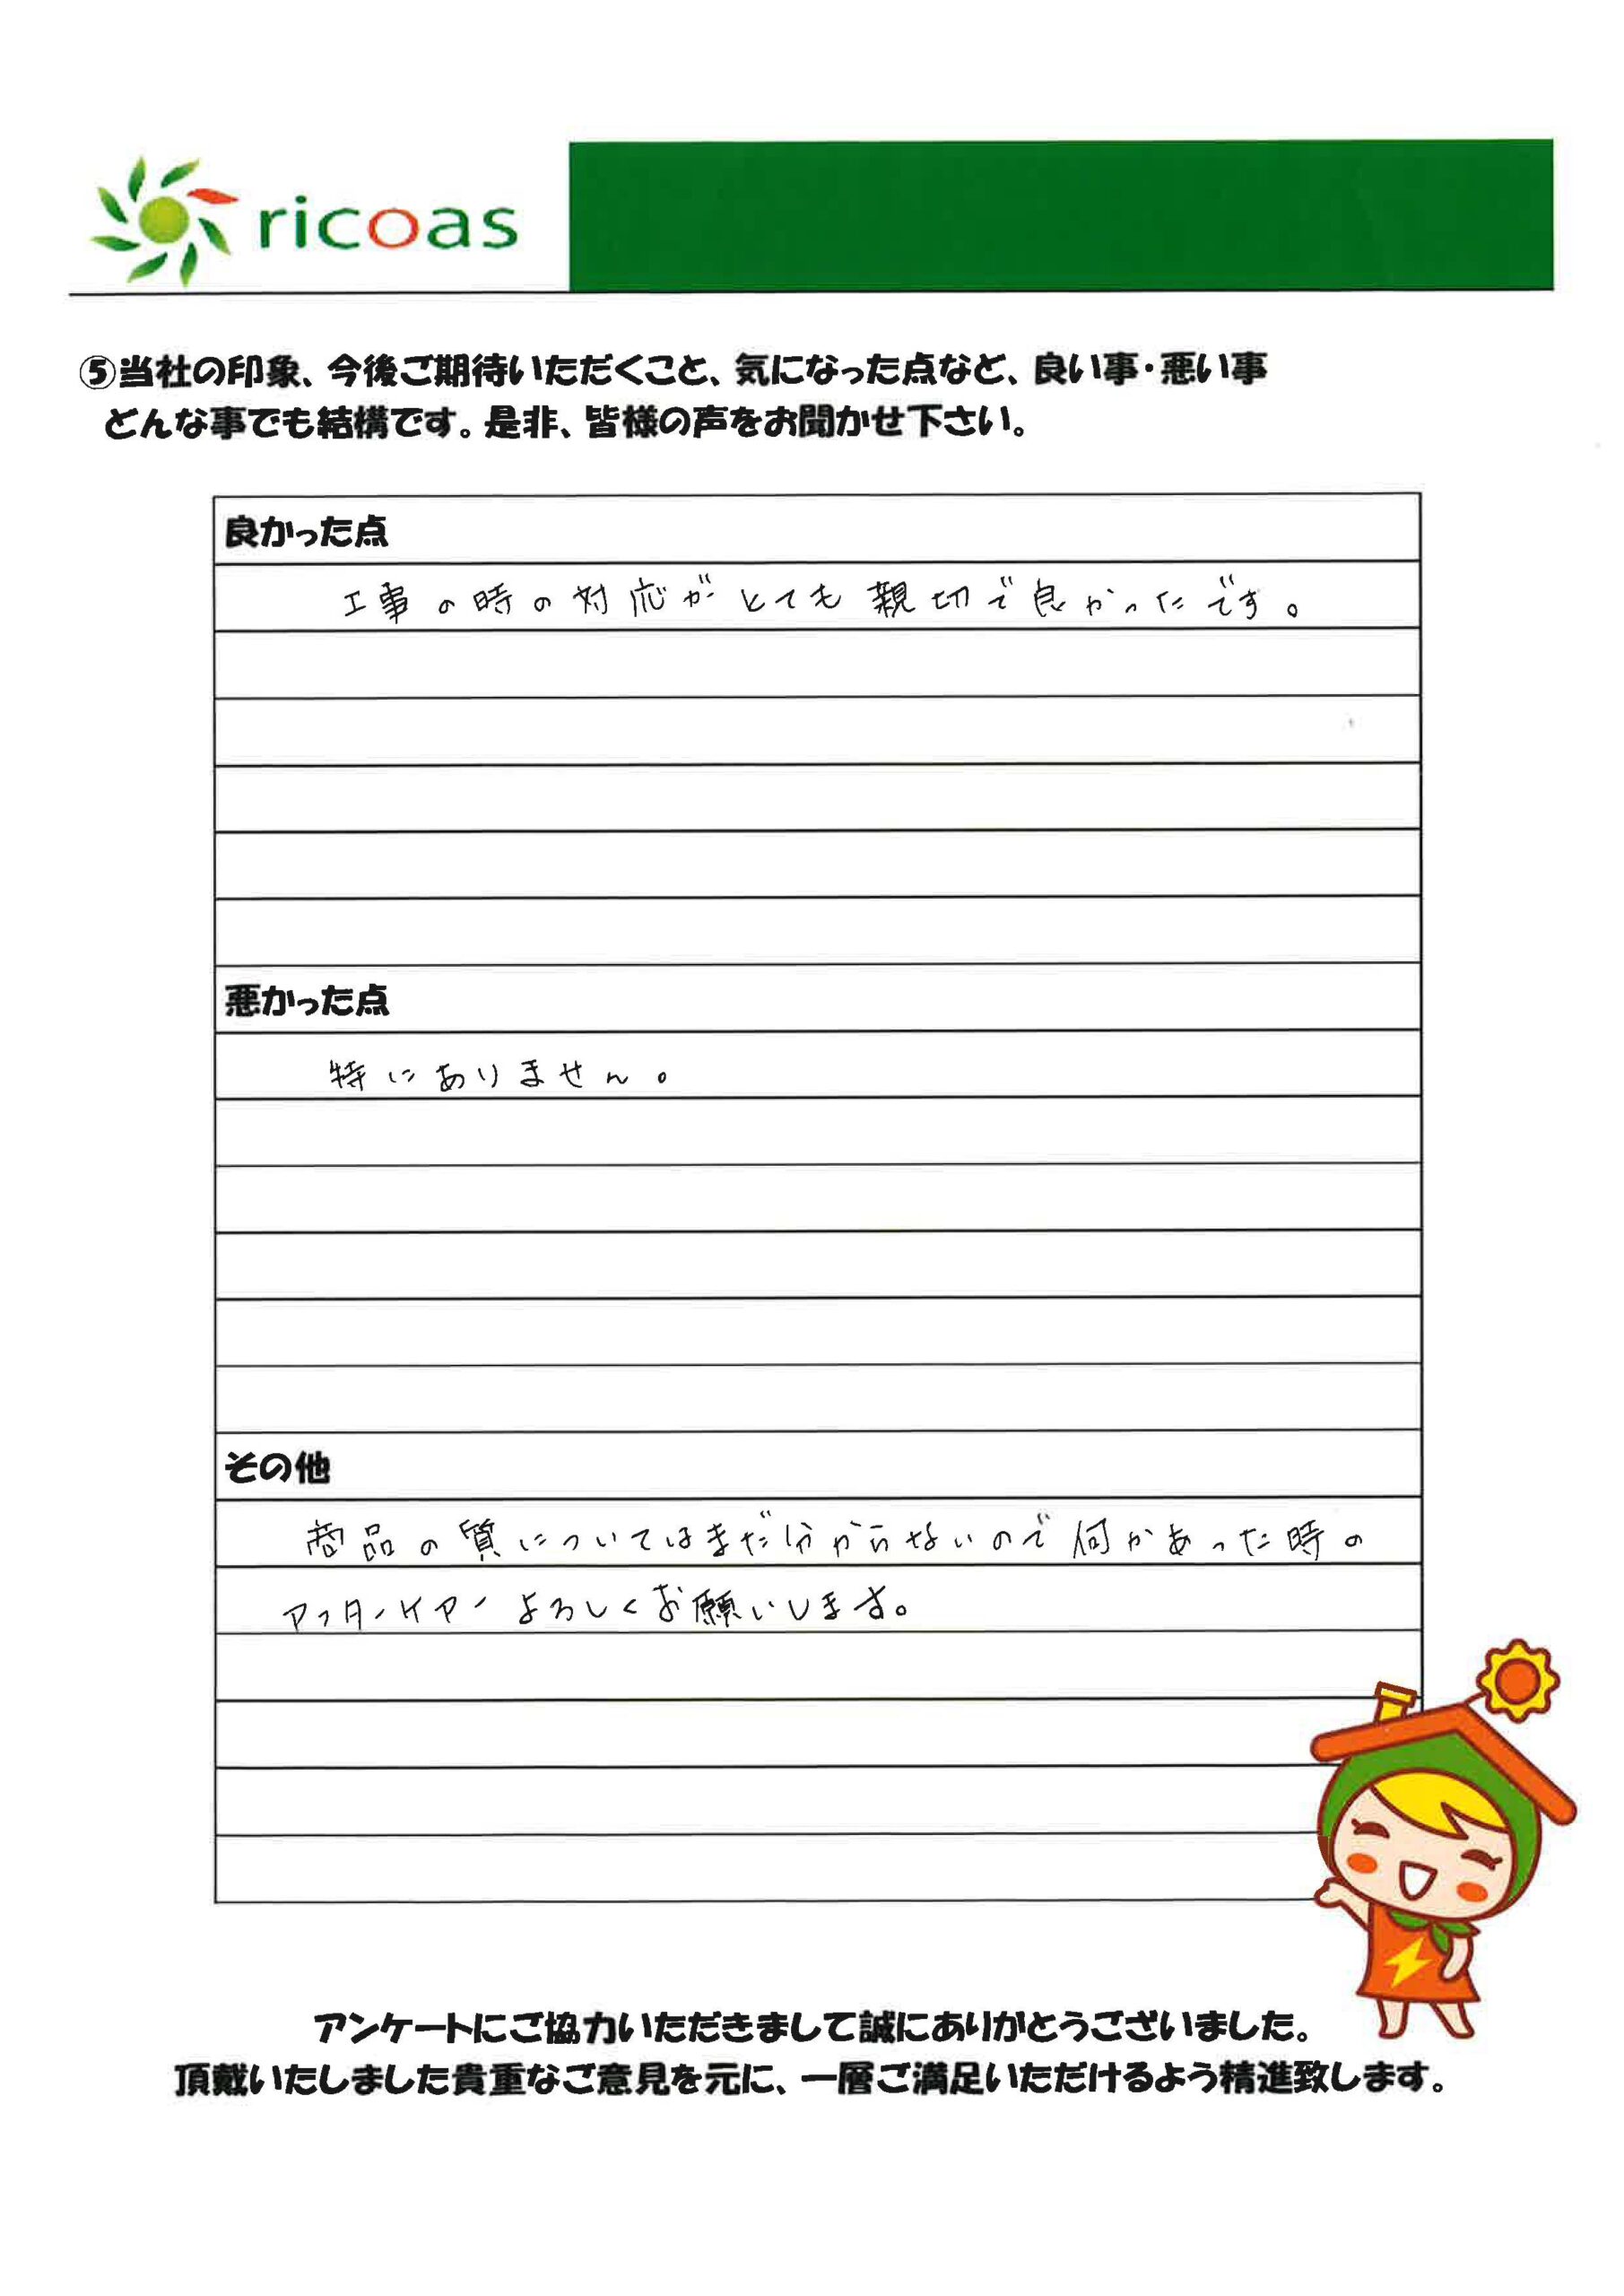 ricoas
⑤当社の印象、今後ご期待いただくこと、気になった点など、良い事・悪い事
どんな事でも結構です。是非、皆様の声をお聞かせ下さい。
良かった点
工事の時の対応がとても親切で良かったです。
悪かった点
特にありません。
その他
商品の質についてはまだ分からないので何かあった時の
アフターケアーよろしくお願いします。
アンケートにご協力いただきまして誠にありがとうございました。
頂戴いたしました貴重なご意見を元に、一層ご満足いただけるよう精進致します。